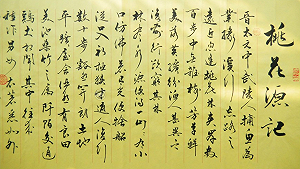 桃花源記
晉太元中武陵人捕魚為
業緣溪行忘路之
遠近忽逢桃花林夾岸數
百步中無雜樹芳草鮮
美落英繽紛漁人甚異之
復前行欲窮其林
林盡水源便得一山山有小
口仿佛若有光便捨船
從口入初極狹才通人復行
數十步豁然開朗土地
平曠屋舍儼然有良田
美池桑竹之屬阡陌交通
雞犬相聞其中往來
種作男女衣著悉如外